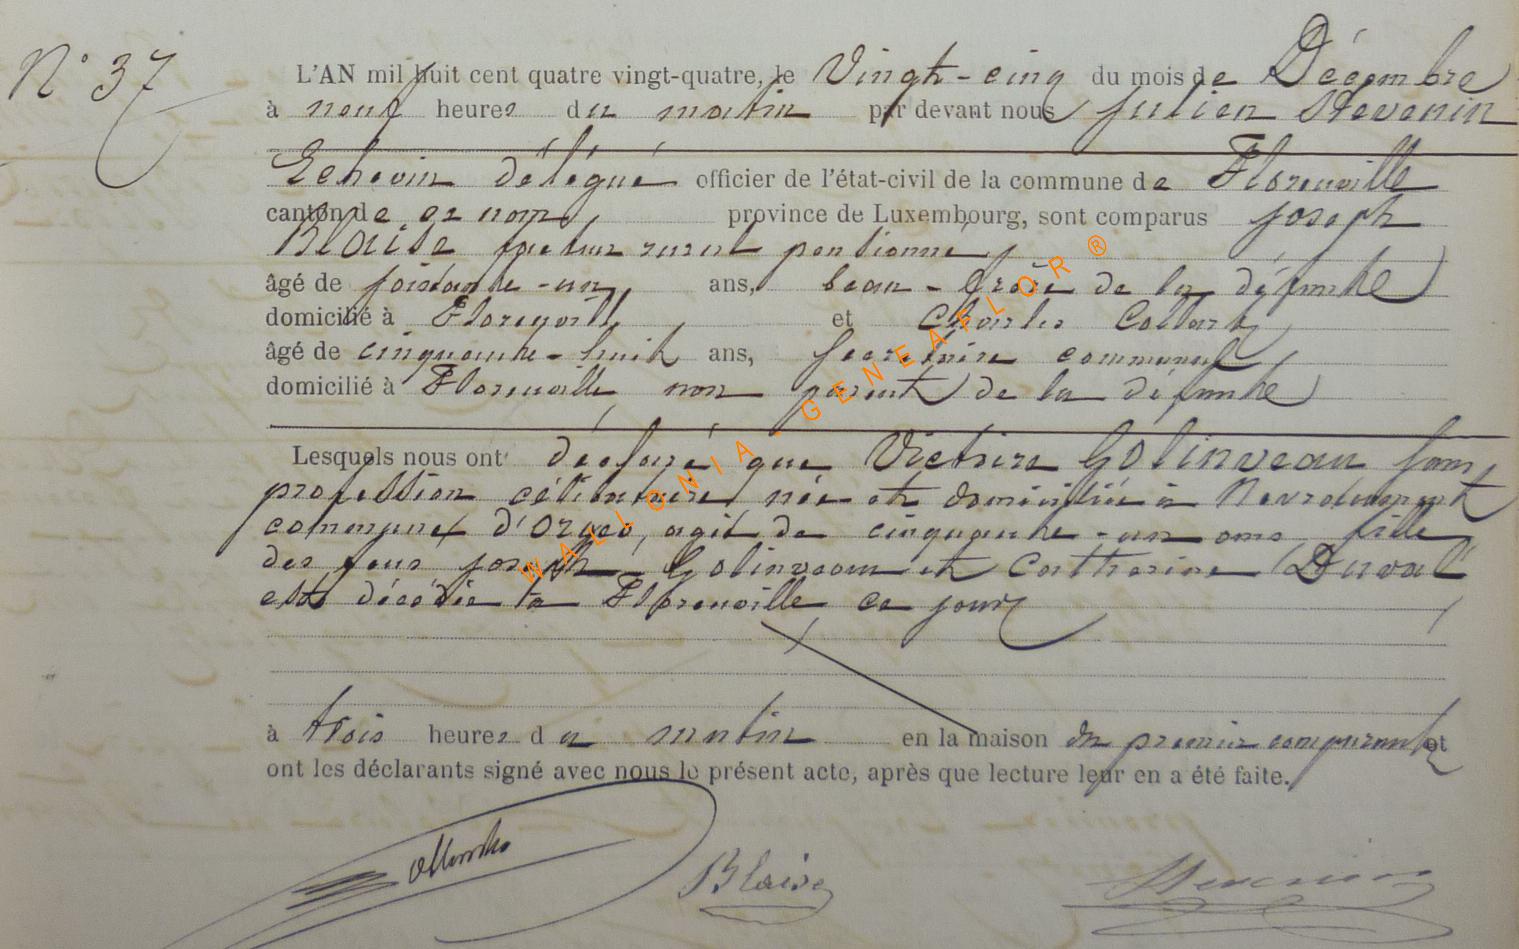 N° 37
L'AN mil huit cent quatre vingt-quatre, le Vingt-cinq du mois de Décembre
à neuf heures du matin par devant nous Julien Stevenin
Echevin délégué officier de l'état-civil de la commune de Florenville
canton de province de Luxembourg, sont comparus Joseph
Blaise facteur rural pentionné
âgé de soisante-un ans, beau-frère de la défunte
domicilié à Florenville et Charles Collard
âgé de cinquante-huit ans, secrétaire communal
domicilié à Florenville non parent de la défunte
Lesquels nous ont déclaré que Victoire Golinveau sans
profession célibataire, née et domiciliée à
commune d'Orgeo, agée de cinquante-un ans fille
des feus Joseph Golinveau et Catherine Duval
est décédée à Florenville ce jour
à trois heures du matin en la maison du premier comparant et
ont les déclarants signé avec nous le présent acte, après que lecture leur en a été faite.
Blaise Stevenin
WALLONIA-GENEAFLOR ®